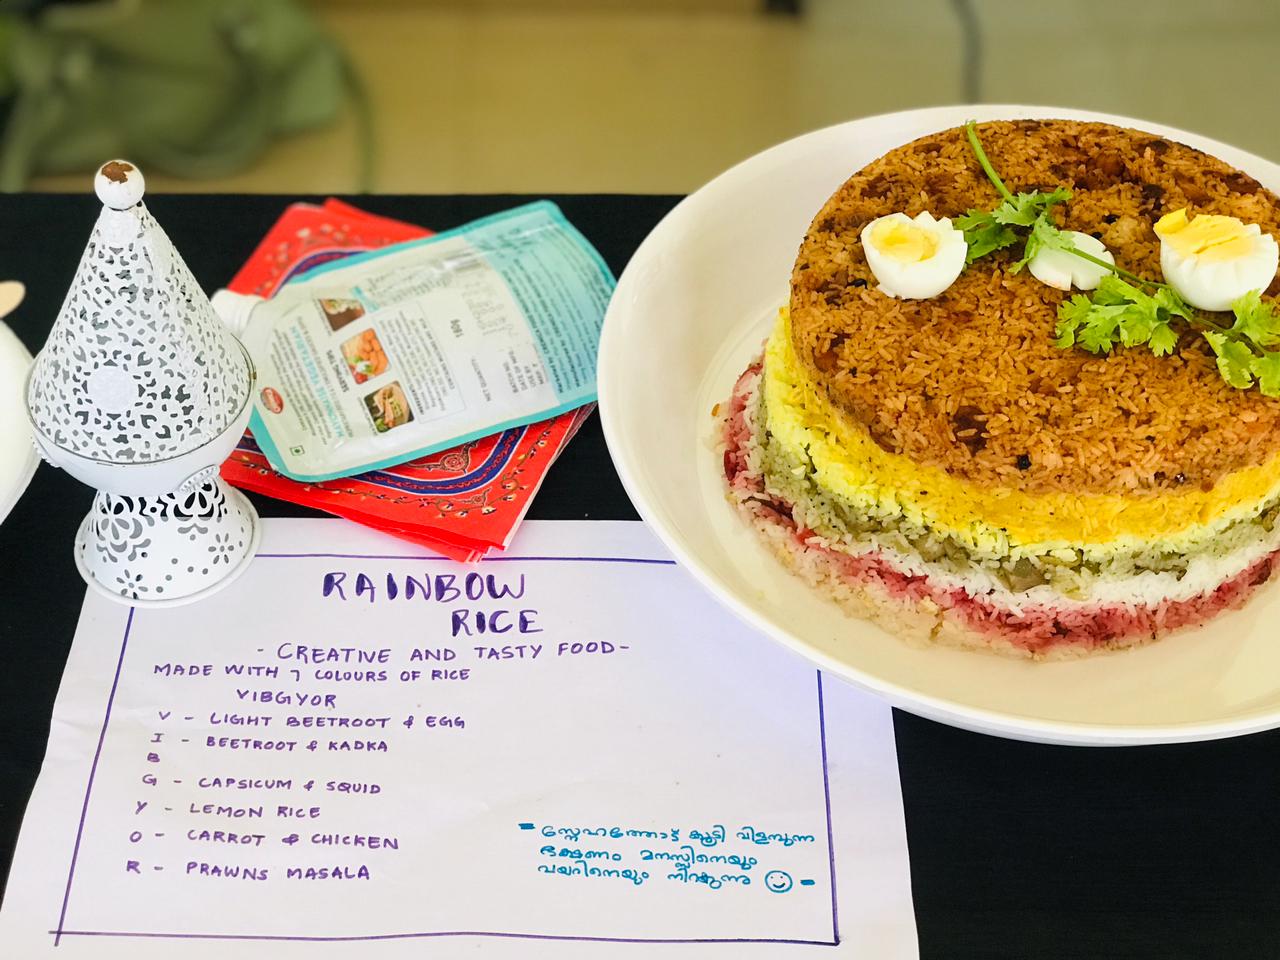 RAINBOW
RICE
- CREATIVE AND TASTY FOOD-
MADE WITH 7 COLOURS OF RICE
VIBGYOR
V - LIGHT BEETROOT & EGG
I - BEETROOT & KADKA
B
G - CAPSICUM & SQUID
Y - LEMON RICE
O - CARROT & CHICKEN
R - PRAWNS MASALA
= സ്നേഹത്തോട് കൂടി വിളമ്പുന്ന
ഭക്ഷണം മനസ്സിനെയും
വയറിനെയും നിറക്കുന്നു ☺ =